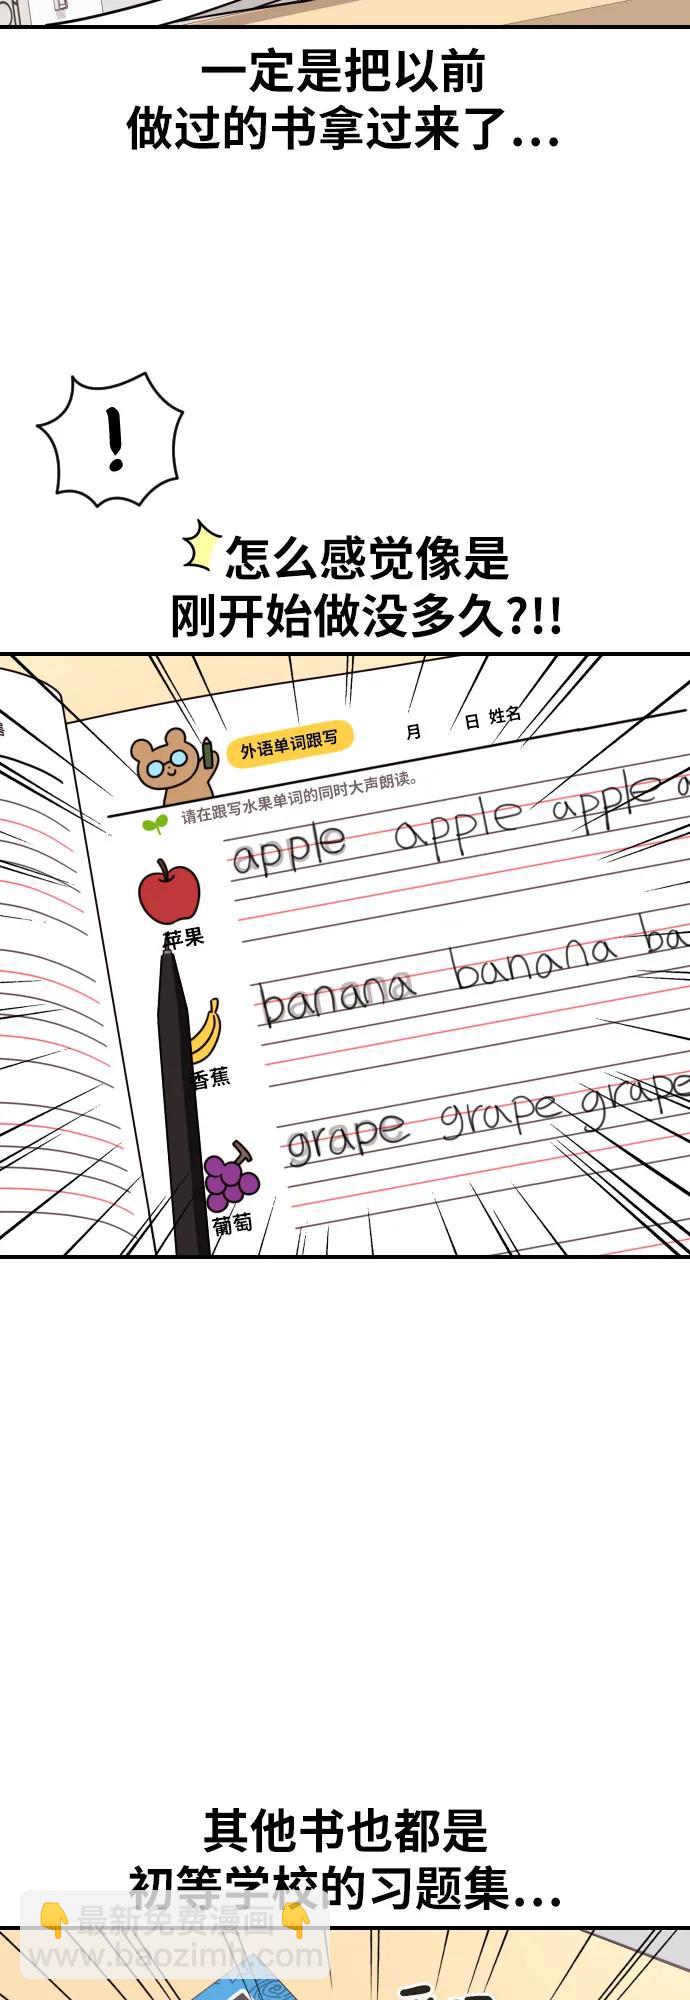 一定是把以前
做过的书拿过来了...
!
怎么感觉像是
刚开始做没多久?!!
外语单词跟写
月 日 姓名
请在跟写水果单词的同时大声朗读。
apple apple apple a
苹果
banana banana ba
香蕉
grape grape grape
葡萄
其他书也都是
初等学校的习题集...
👇最新免费漫画👇
www.baozimh.com